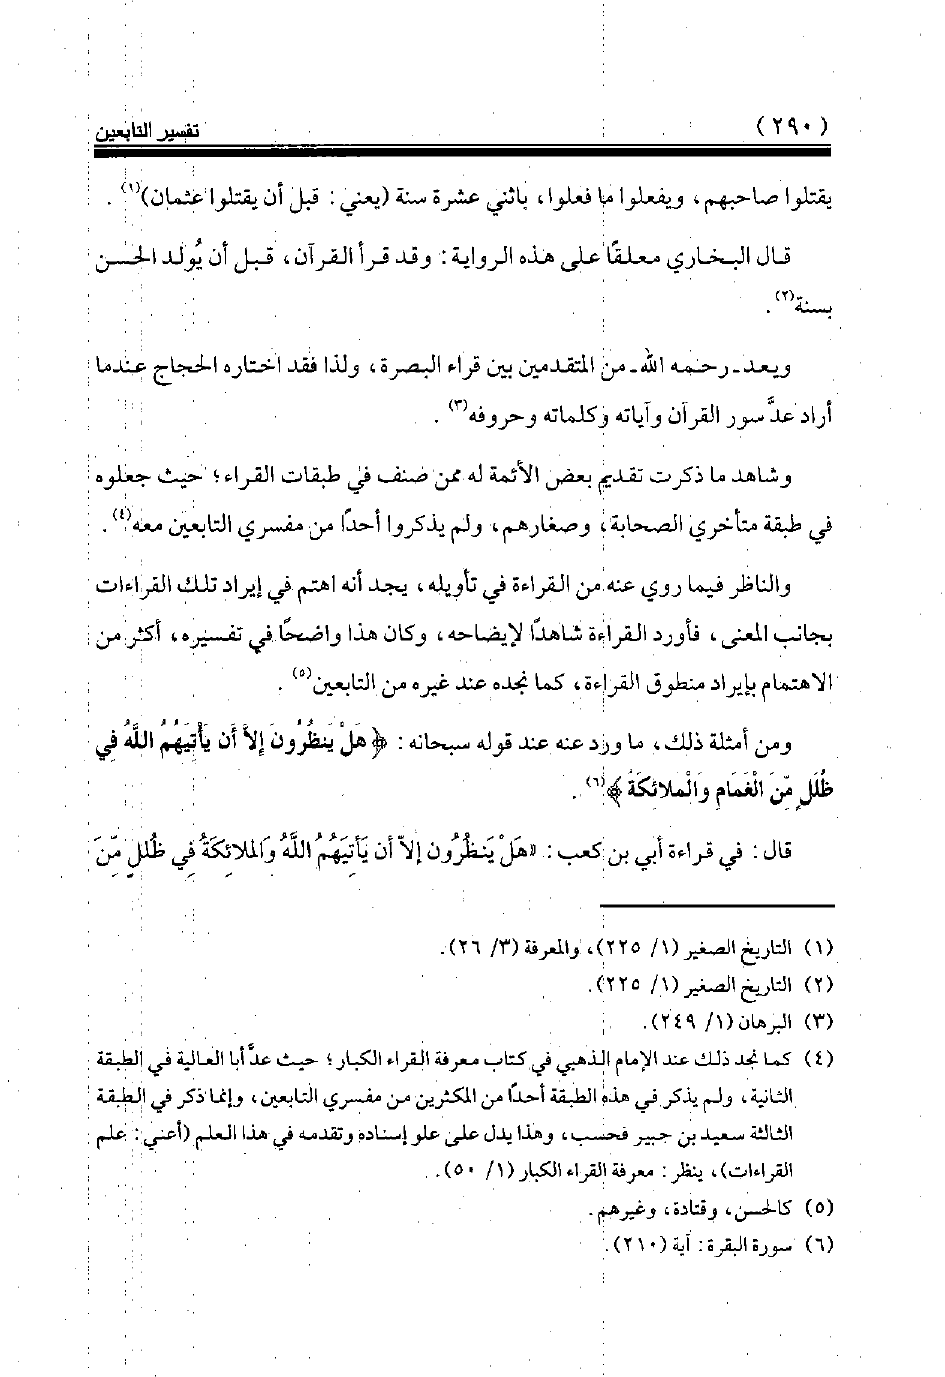 (٢٩٠) تفسير التابعين
يقتلوا صاحبهم، ويفعلوا ما فعلوا، باثني عشرة سنة (يعني: قبل أن يقتلوا عثمان)(١).
قال البخاري معلقًا على هذه الرواية: وقد قرأ القرآن، قبل أن يُولد الحسن
بسنة(٢).
ويعد ـ رحمه الله ـ من المتقدمين بين قراء البصرة، ولذا فقد اختاره الحجاج عندما
أراد عدَّ سور القرآن وآياته وكلماته وحروفه(٣).
وشاهد ما ذكرت تقديم بعض الأئمة له ممن صنف في طبقات القراء؛ حيث جعلوه
في طبقة متأخري الصحابة، وصغارهم، ولم يذكروا أحدًا من مفسري التابعين معه(٤).
والناظر فيما روي عنه من القراءة في تأويله، يجد أنه اهتم في إيراد تلك القراءات
بجانب المعنى، فأورد القراءة شاهدًا لإيضاحه، وكان هذا واضحًا في تفسيره، أكثر من
الاهتمام بإيراد منطوق القراءة، كما نجده عند غيره من التابعين(٥).
ومن أمثلة ذلك، ما ورد عنه عند قوله سبحانه: ﴿هَلْ يَنظُرُونَ إِلاَّ أَن يَأْتِيَهُمُ اللَّهُ فِي
ظُلَلٍ مِّنَ الْغَمَامِ وَالْمَلائِكَةُ﴾(٦).
قال: في قراءة أبي بن كعب: «هَلْ يَنظُرُون إلاَّ أن يَأتِيَهُمُ اللَّهُ وَالملائِكَةُ فِي ظُللٍ مِّنَ
(١) التاريخ الصغير (١/ ٢٢٥)، والمعرفة (٣/ ٢٦).
(٢) التاريخ الصغير (١/ ٢٢٥).
(٣) البرهان (١/ ٢٤٩).
(٤) كما نجد ذلك عند الإمام الذهبي في كتاب معرفة القراء الكبار؛ حيث عدَّ أبا العالية في الطبقة
الثانية، ولم يذكر في هذه الطبقة أحدًا من المكثرين من مفسري التابعين، وإنما ذكر في الطبقة
الثالثة سعيد بن جبير فحسب، وهذا يدل على علو إسناده وتقدمه في هذا العلم (أعني: علم
القراءات)، ينظر: معرفة القراء الكبار (١/ ٥٠).
(٥) كالحسن، وقتادة، وغيرهم.
(٦) سورة البقرة: آية (٢١٠).